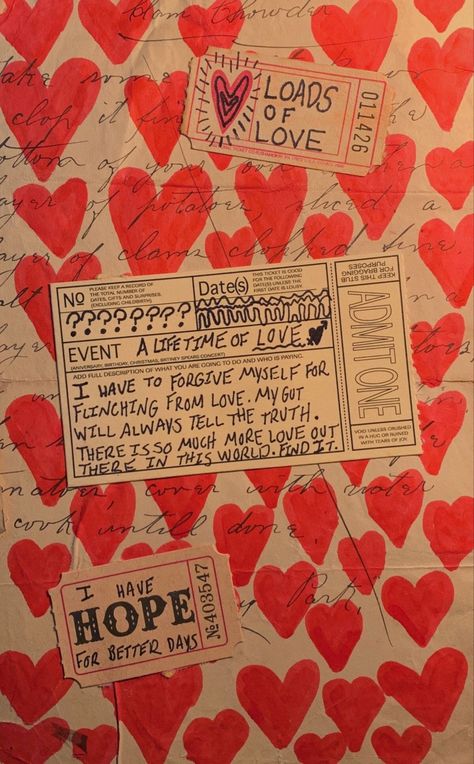 Clam Chowder
LOADS
OF
LOVE
011426
Take some
clop it fine
bottom of your
layer of potatoes, sliced a
layer of clams clopped fine
No
PLEASE KEEP A RECORD OF
THE TOTAL NUMBER OF
DATES, GIFTS AND SURPRISES.
(EXCLUDING CHILDBIRTH)
????????
Date(s)
THIS TICKET IS GOOD
FOR THE FOLLOWING
DATE(S) UNLESS THE
FIRST DATE IS LOUSY.
EVENT A LIFETIME OF LOVE.
(ANNIVERSARY, BIRTHDAY, CHRISTMAS, BRITNEY SPEARS CONCERT)
ADD FULL DESCRIPTION OF WHAT YOU ARE GOING TO DO AND WHO IS PAYING.
I HAVE TO FORGIVE MYSELF FOR
FLINCHING FROM LOVE. MY GUT
WILL ALWAYS TELL THE TRUTH.
THERE IS SO MUCH MORE LOVE OUT
THERE IN THIS WORLD. FIND IT.
KEEP THIS STUB
FOR BRAGGING
PURPOSES
ADMIT ONE
VOID UNLESS CRUSHED
IN A HUG OR RUINED
WITH TEARS OF JOY.
cover with water
cook 'untill done.
Park,"
I HAVE
HOPE
FOR BETTER DAYS
No 403547